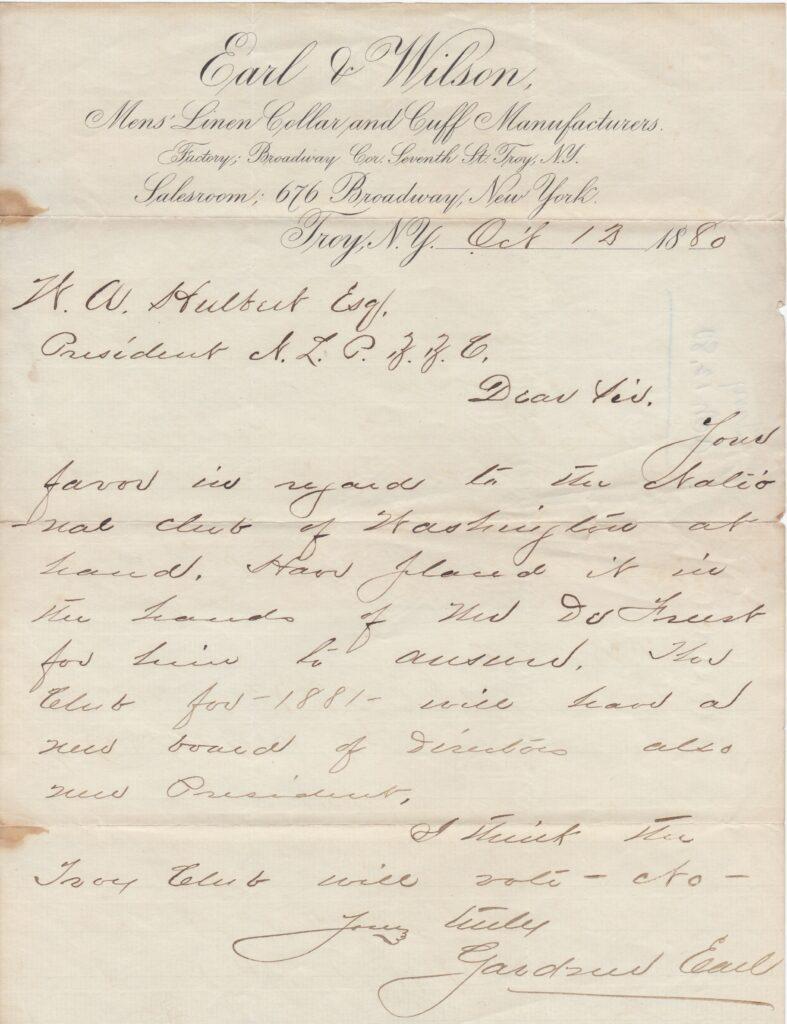 Earl & Wilson,
Mens' Linen Collar and Cuff Manufacturers.
Factory; Broadway Cor. Seventh St. Troy, N.Y.
Salesroom; 676 Broadway, New York.
Troy, N.Y. Oct 13 1880
W. A. Hulbert Esq.
President N. L. P. B. B. C.
Dear Sir.
Your
favor in regard to the Natio
-nal Club of Washington at
hand. Have placed it in
the hands of Mr De Freest
for him to answer. The
Club for -1881- will have a
new board of directors also
new President.
I think the
Troy Club will vote - No -
Yours truly
Gardner Earl